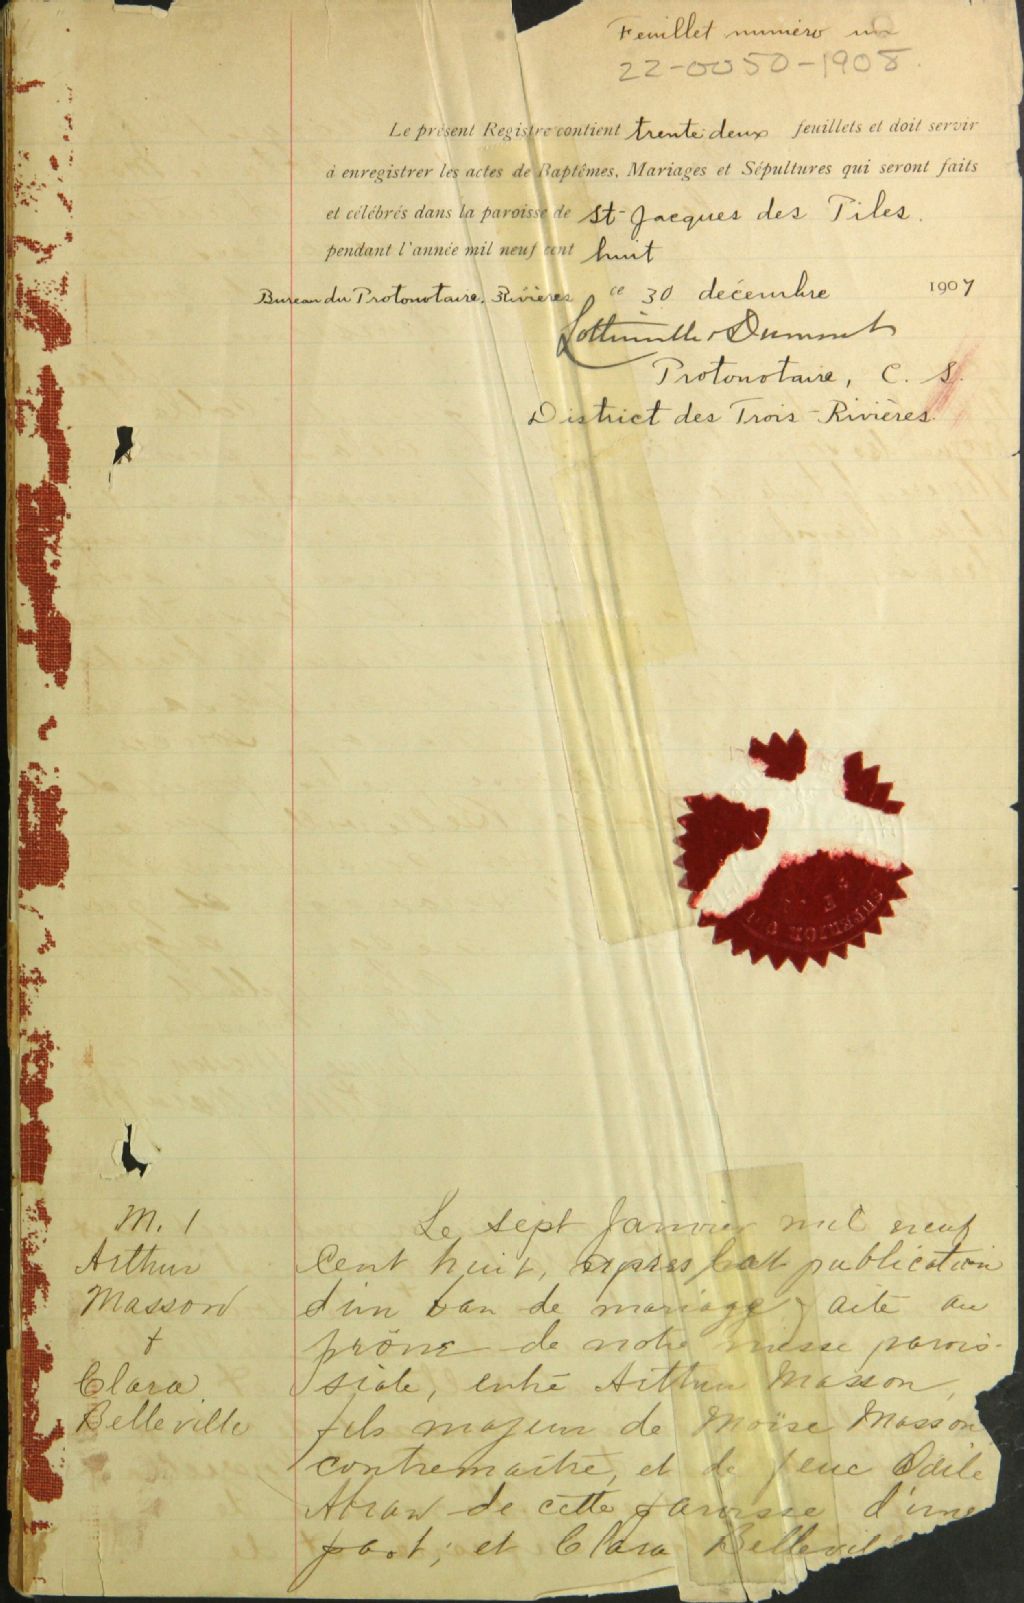 Feuillet numéro un
22-0050-1908.
Le présent Registre contient trente deux feuillets et doit servir
à enregistrer les actes de Baptêmes, Mariages et Sépultures qui seront faits
et célébrés dans la paroisse de St-Jacques des Piles.
pendant l'année mil neuf cent huit
Bureau du Protonotaire, 3Rivières ce 30 décembre 1907
Protonotaire, C. S.
District des Trois-Rivières.
SUPERIOR
M. 1
Arthur
Masson
+
Clara
Belleville
Le sept Janvier mil neuf
cent huit, après la publication
d'un ban de mariage faite au
prône de notre messe parois-
siale, entre Arthur Masson,
fils majeur de Moïse Masson
contremaitre, et de feue Odile
de cette paroisse d'une
part; et Clara Bellevil